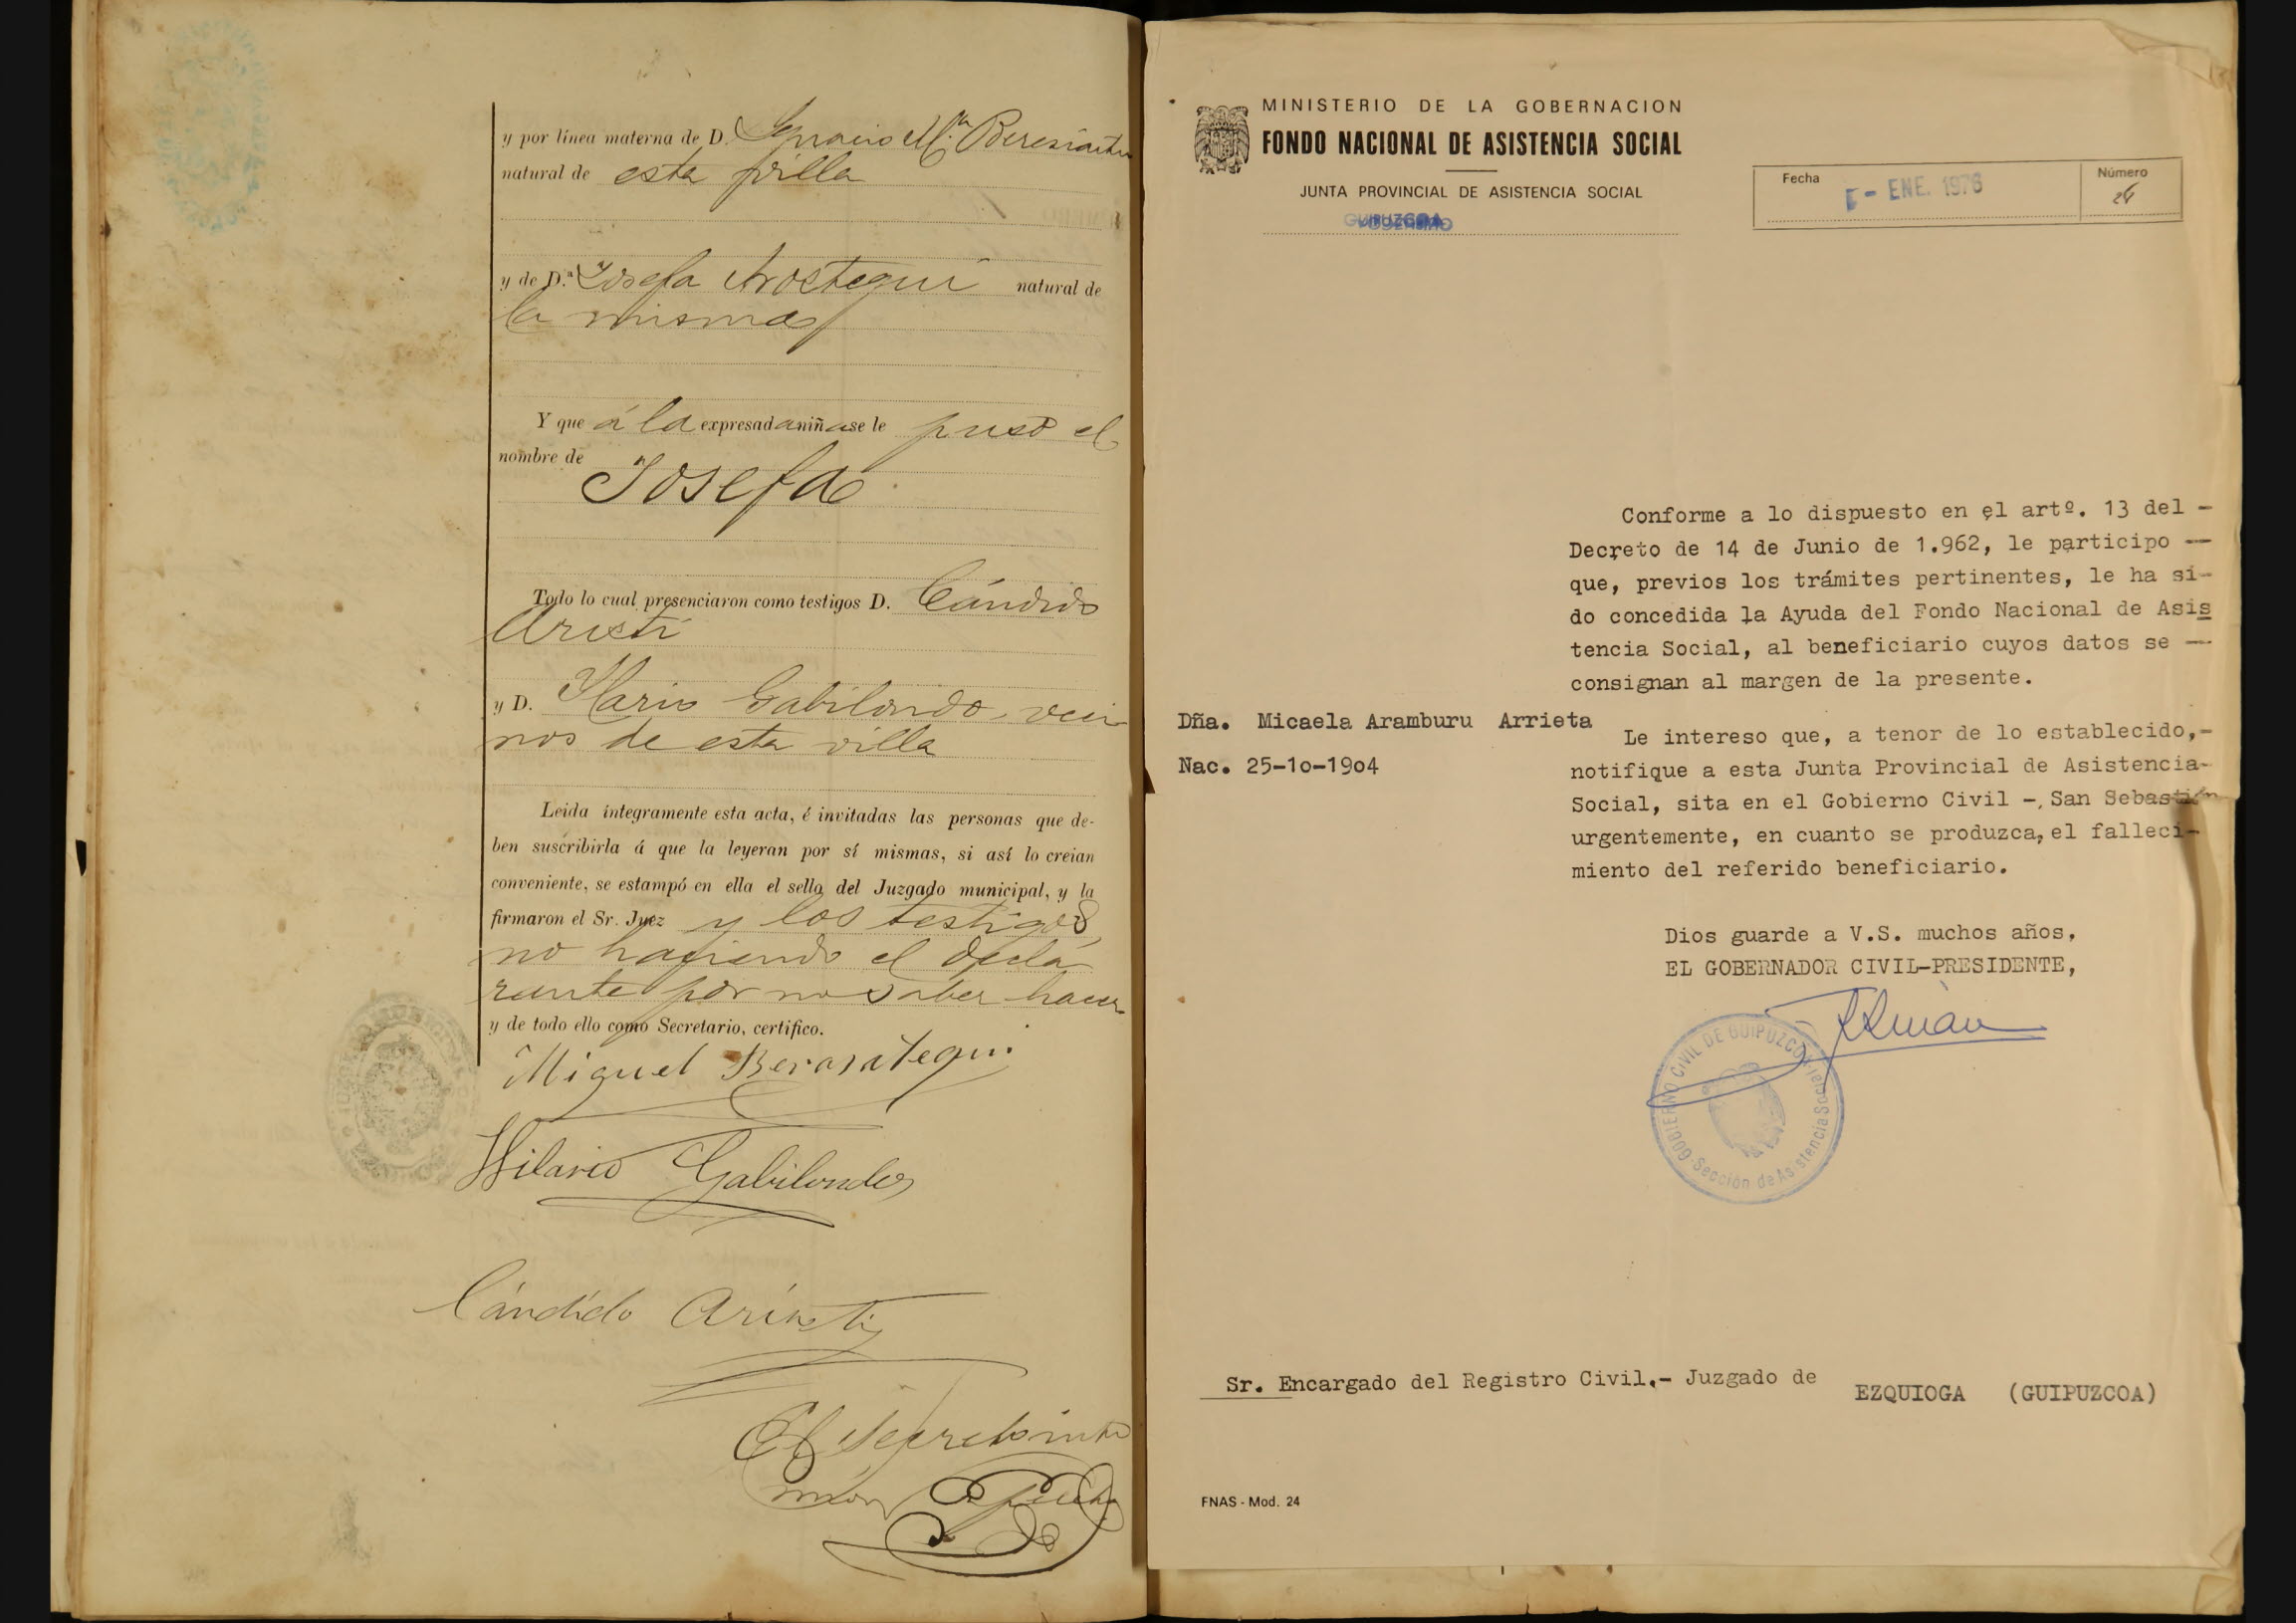 y por línea materna de D. Ignacio M.ª
natural de esta villa
y de D.ª Josefa Arostegui natural de
la misma
Y que á la expresada niña se le puso el
nombre de
Josefa
Todo lo cual presenciaron como testigos D. Cándido
Aristi
y D. Ylario Gabilondo, veci
nos de esta villa
Leida íntegramente esta acta, é invitadas las personas que de-
ben suscribirla á que la leyeran por sí mismas, si así lo creian
conveniente, se estampó en ella el sello del Juzgado municipal, y la
firmaron el Sr. Juez y los testigos
no haciendo el decla
rante por no saber hacer
y de todo ello como Secretario, certifico.
Miguel Berasategui
Hilario Gabilondo
Cándido Aristi
El Secretario
MINISTERIO DE LA GOBERNACION
FONDO NACIONAL DE ASISTENCIA SOCIAL
JUNTA PROVINCIAL DE ASISTENCIA SOCIAL
GUIPUZCOA
Fecha
- ENE. 1976
Número
24
Conforme a lo dispuesto en el artº. 13 del -
Decreto de 14 de Junio de 1.962, le participo --
que, previos los trámites pertinentes, le ha si-
do concedida la Ayuda del Fondo Nacional de Asis
tencia Social, al beneficiario cuyos datos se --
consignan al margen de la presente.
Dña. Micaela Aramburu Arrieta
Nac. 25-1o-19o4
Le intereso que, a tenor de lo establecido,-
notifique a esta Junta Provincial de Asistencia-
Social, sita en el Gobierno Civil -, San Sebastián
urgentemente, en cuanto se produzca, el falleci-
miento del referido beneficiario.
Dios guarde a V.S. muchos años,
EL GOBERNADOR CIVIL-PRESIDENTE,
GOBIERNO CIVIL DE GUIPUZCOA
Sección de Asistencia Social
Sr. Encargado del Registro Civil.- Juzgado de EZQUIOGA (GUIPUZCOA)
FNAS - Mod. 24